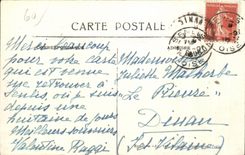 60
CARTE POSTALE
Merci beaucoup
pour votre carte
qui est venue
me retrouver à
Senlis où je suis
depuis une
huitaine de jours
Meilleurs souvenirs
Valentine Raggi
Mademoiselle
Juliette Malherbe
Le Prieuré
Dinan
Ille-et-Vilaine
OISE